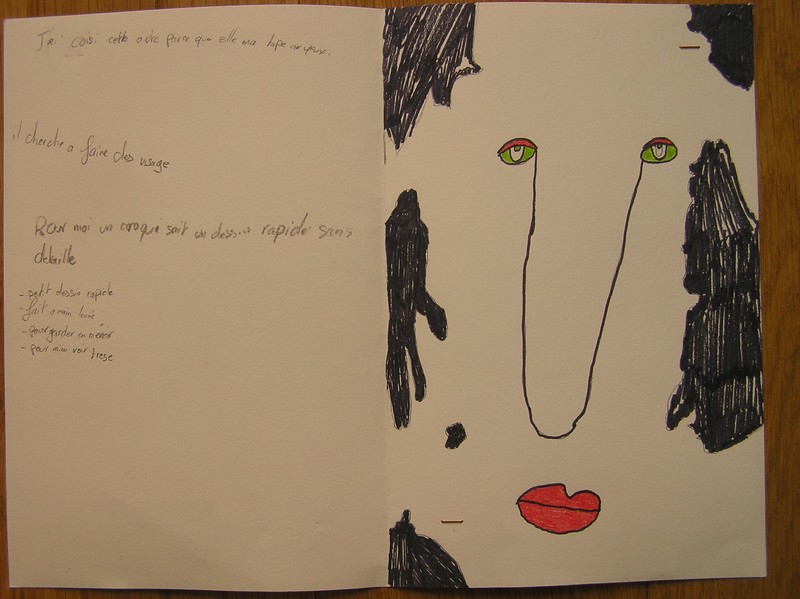 J'ai coisi cette outre parce que elle ma tape au yeux.
il cherche a faire des visage
Pour moi un croqui sait un dessin rapide sans
detaille
- petit dessin rapide
- fait a main levée
- pour garder en mémoir
- pour mieu voir